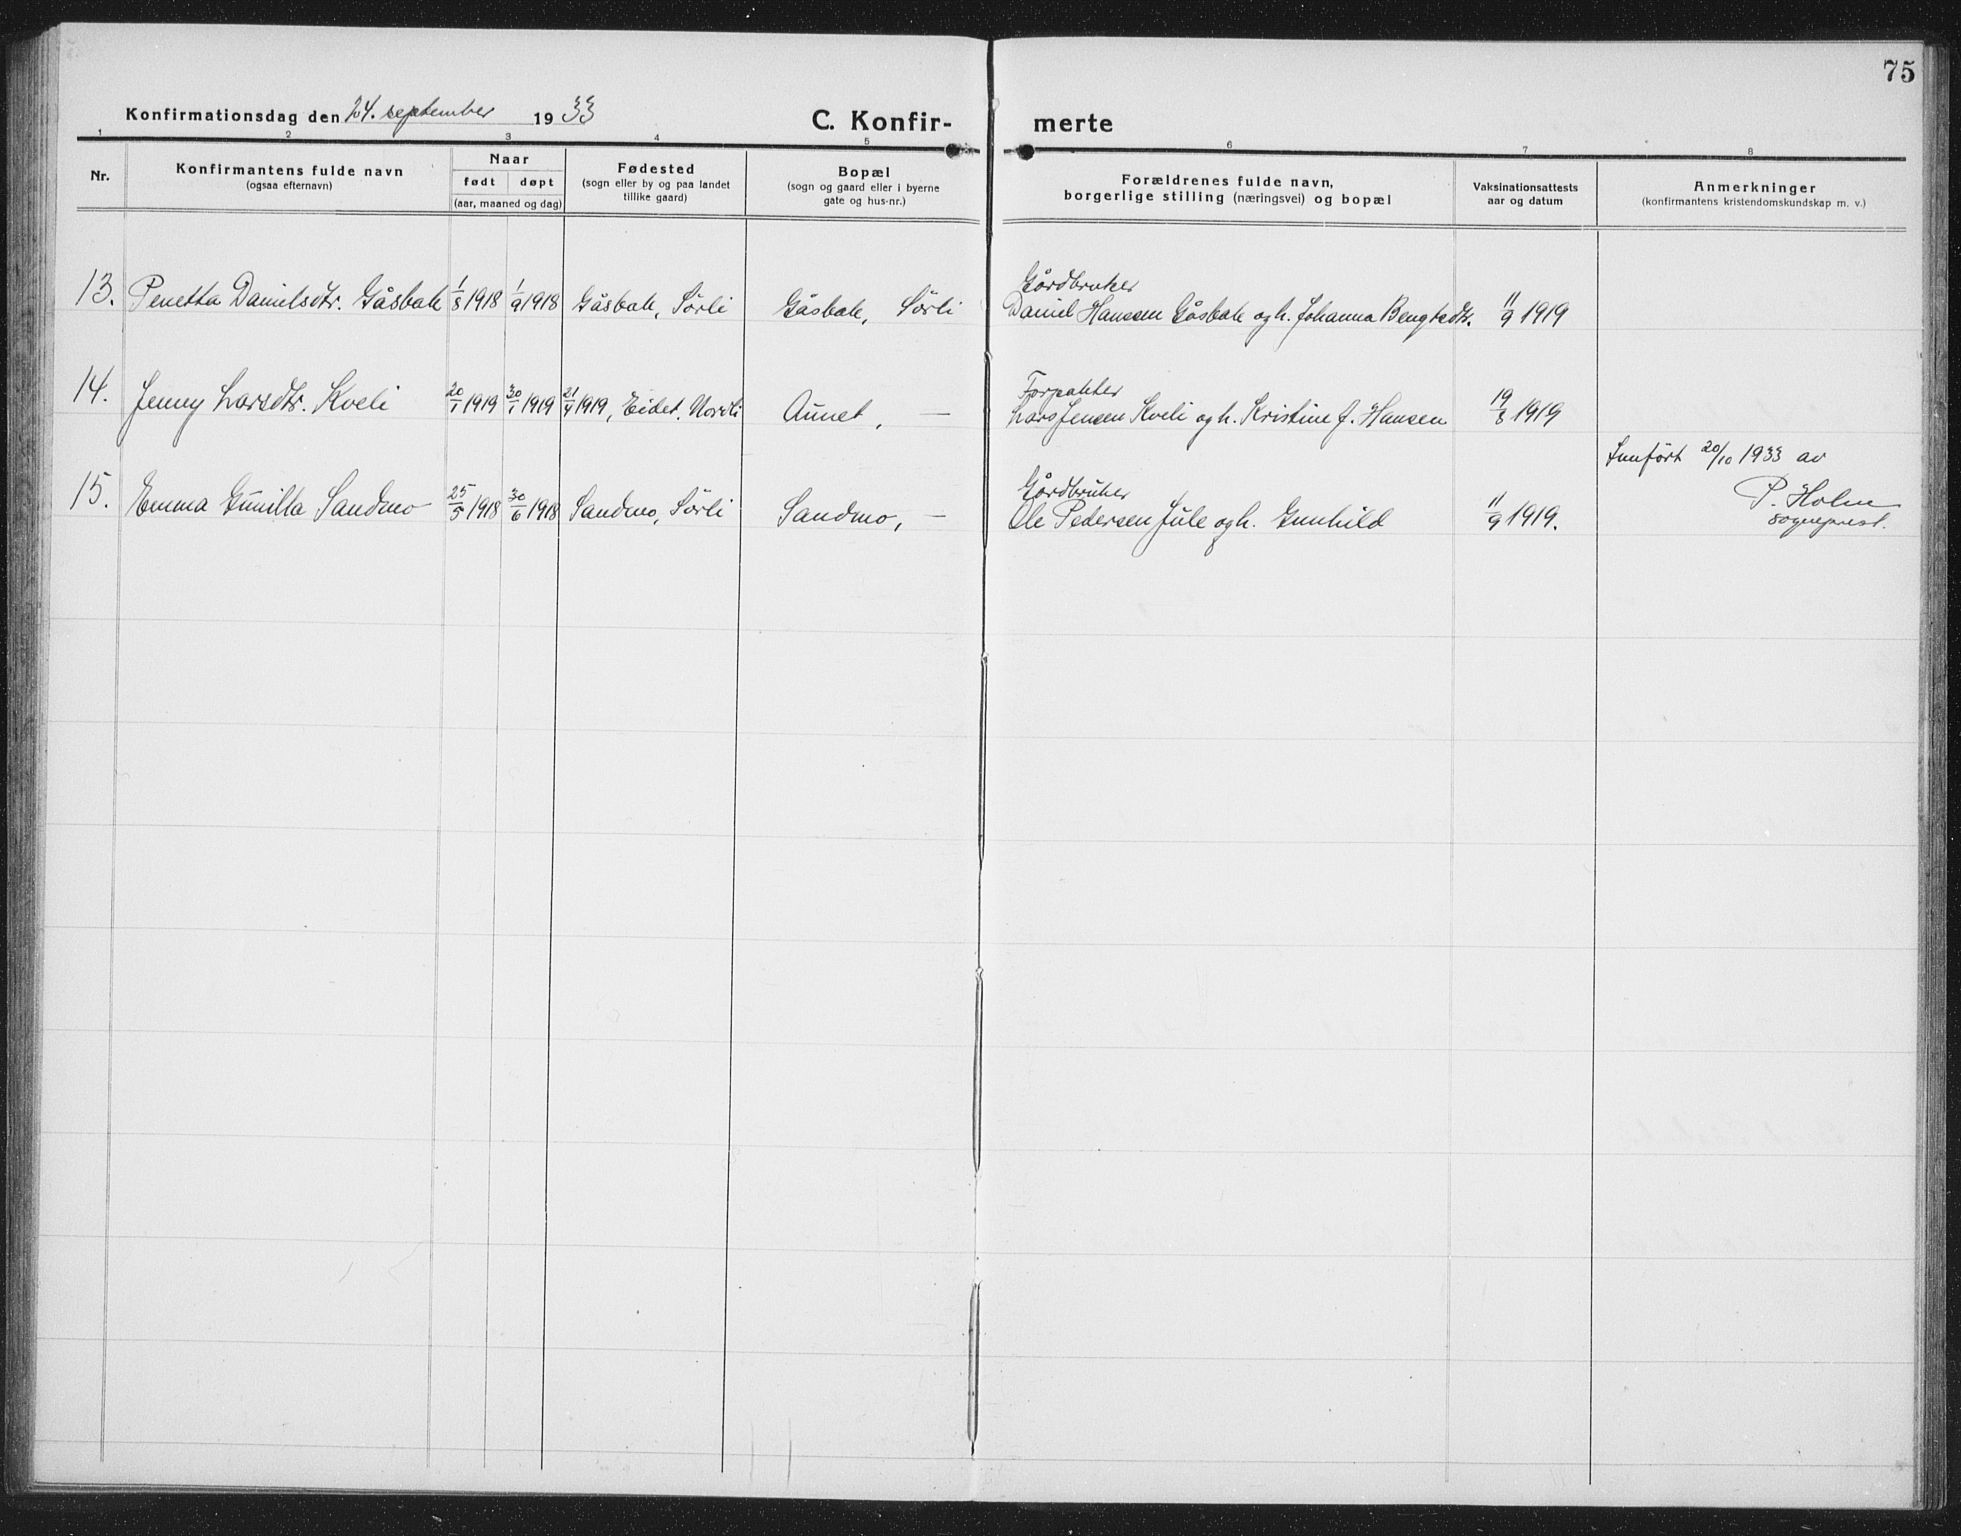 75
Konfirmationsdag den 24. september 1933
C. Konfir- merte
1 2 3 4 5 6 7 8
Nr.
Konfirmantens fulde navn
(ogsaa efternavn)
Naar
født døpt
(aar, maaned og dag)
Fødested
(sogn eller by og paa landet
tillike gaard)
Bopæl
(sogn og gaard eller i byerne
gate og hus-nr.)
Forældrenes fulde navn,
borgerlige stilling (næringsvei) og bopæl
Vaksinationsattests
aar og datum
Anmerkninger
(konfirmantens kristendomskundskap m. v.)
Gårdbruker
13. Penetta Danielsdtr. Gåsbak 1/8 1918 1/9 1918 Gåsbak, Sørli Gåsbak, Sørli Daniel Hanssen Gåsbak og h. Johanna Bengtsdtr. 11/9 1919
Forpakter
14. Jenny Larsdtr. Kveli 20/1 1919 30/1 1919 21/4 1919, Eidet. Nordli Aunet, — Lars Jensen Kveli og h. Kristine f. Hansen 19/8 1919
Innført 20/10 1933 av
P. Holm
sogneprest.
Gårdbruker
15. Emma Gunilla Sandmo 25/5 1918 30/6 1918 Sandmo, Sørli Sandmo, — Ole Pedersen Jule og h. Gunhild 11/9 1919.